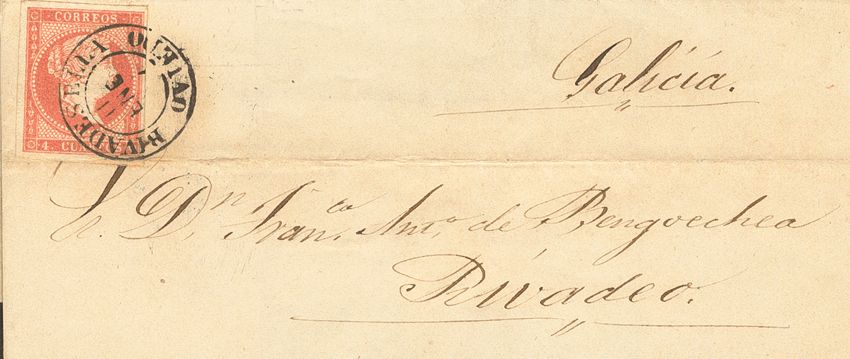 CORREOS
RIVADESELLA
OVIEDO
11
ENE
4. CU
Galicia.
Dn Franco. Anto. de Bengoechea
Rivadeo.